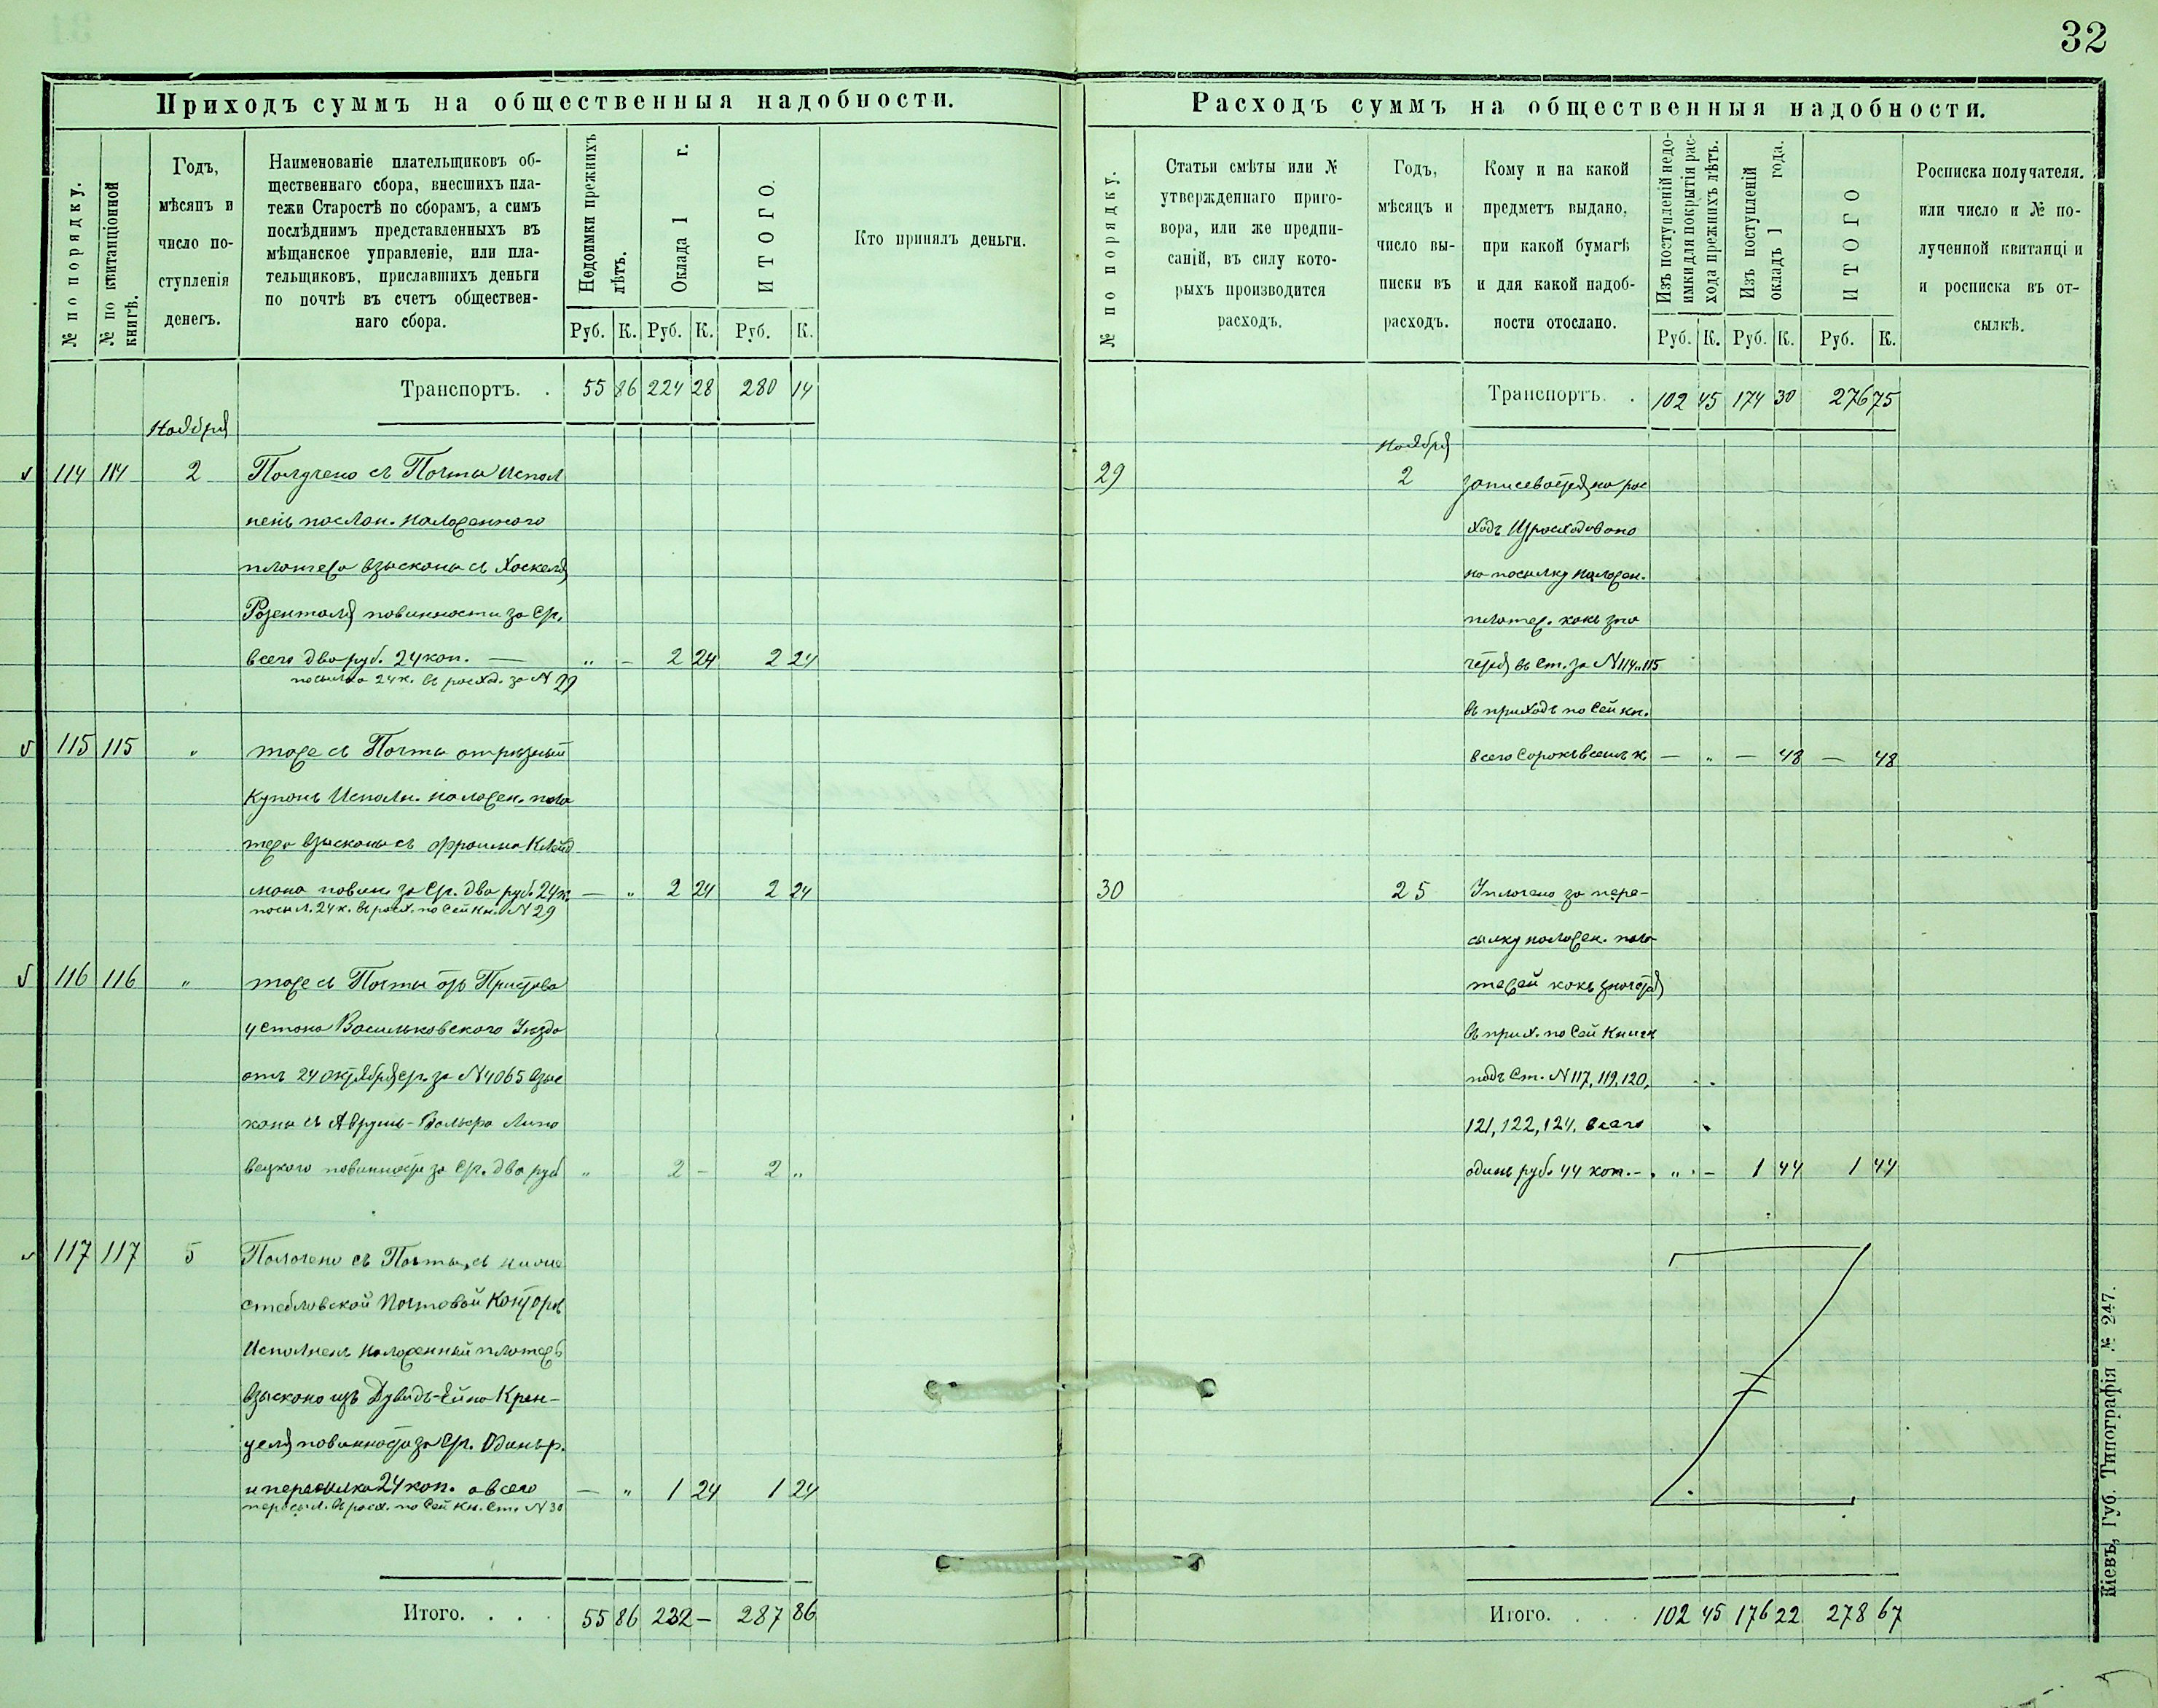 32
Приходъ суммъ на общественныя надобности.
№ по порядку.
№ по квитанціонной книгѣ.
Годъ,
мѣсяцъ и
число по-
ступленія
денегъ.
Наименованіе плательщиковъ об-
щественнаго сбора, внесшихъ пла-
тежи Старостѣ по сборамъ, а симъ
послѣднимъ представленныхъ въ
мѣщанское управленіе, или пла-
тельщиковъ, приславшихъ деньги
по почтѣ въ счетъ обществен-
наго сбора.
Недоимки прежнихъ лѣтъ.
Оклада 1 г.
ИТОГО.
Руб. К. Руб. К. Руб. К.
Кто принялъ деньги.
Транспортъ. . 55 86 224 28 280 14
Ноября
114 114 2 Получено съ Почты испол
неній послан. наложенного
платежа взысконы съ Хаскеля
Розенталя повинности за с/г.
всего два руб. 24 коп. — " - 2 24 2 24
посылка 24 к. въ расход. за N 29
115 115 " тоже съ Почты отрѣзный
Купонъ Исполн. наложен. пла
тежа взысканы съ Фроима Клейд
мана повин. за с/г. два руб. 24 к. — " 2 24 2 24
посыл. 24 к. въ расх. по сей кн. N 29
116 116 " тоже съ Почты отъ Пристава
4 стана Васильковского Уѣзда
отъ 24 октября с/г. за N 4065 взыс
каны съ Аврумъ-Вольфа Липо
вецкого повинности за с/г. два руб " 2 - 2 "
117 117 5 Получено съ Почты, съ
стебловской Почтовой Конторы
Исполнен наложенный платежъ
взыскано изъ Дувидъ-Ейна Крен-
целя повинности за с/г. Одинъ р.
и пересылка 24 коп. а всего — " 1 24 1 24
пересыл. въ расх. по сей кн. ст. N 30
Итого. . . . 55 86 232 — 287 86
Расходъ суммъ на общественныя надобности.
№ по порядку.
Статьи смѣты или №
утвержденнаго приго-
вора, или же предпи-
саній, въ силу кото-
рыхъ производится
расходъ.
Годъ,
мѣсяцъ и
число вы-
писки въ
расходъ.
Кому и на какой
предметъ выдано,
при какой бумагѣ
и для какой надоб-
ности отослано.
Изъ поступленій недо-
имки для покрытія рас-
хода прежнихъ лѣтъ.
Изъ поступленій
окладъ 1 года.
ИТОГО
Руб. К. Руб. К. Руб. К.
Росписка получателя.
или число и № по-
лученной квитанці и
и росписка въ от-
сылкѣ.
Транспортъ. . 102 45 174 30 276 75
Ноября
29 2 записевается на рас
ходъ Израсходовано
на посылку наложен.
платеж. какъ зна
чется въ ст. за N 114 и 115
въ приходъ по сей кн.
всего сорокъ восемь к — " — 48 — 48
30 25 Уплочено за пере-
сылку наложен. пла
тежей какъ значется
въ прих. по сей Книгѣ
подъ Ст. N 117, 119, 120,
121, 122, 124. всего
одинъ руб. 44 коп. - " - 1 44 1 44
Итого. . . . 102 45 176 22 278 67
Кіевъ, Губ. Типографія № 247.